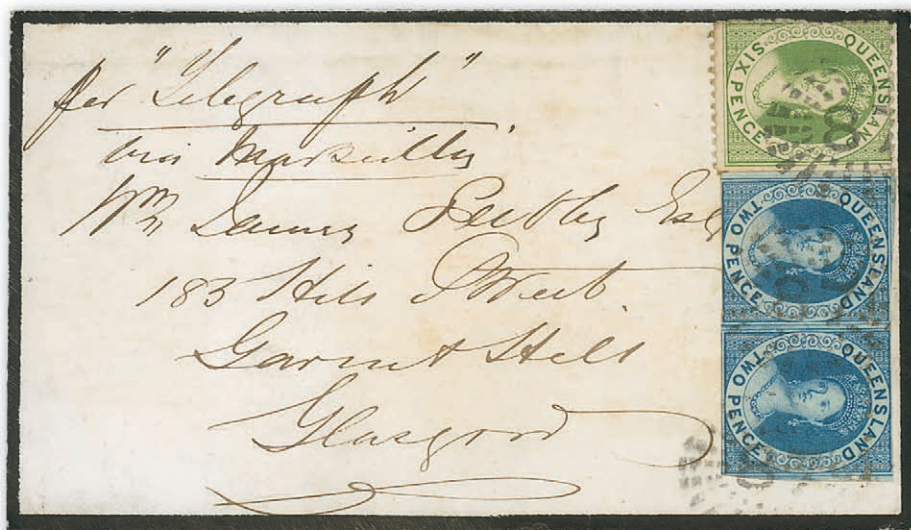 per "Telegraph"
via Marseilles
Wm James Esq
183 Hill Street.
Garnet Hill
Glasgow
QUEENSLAND
SIX PENCE
QUEENSLAND
TWO PENCE
QUEENSLAND
TWO PENCE